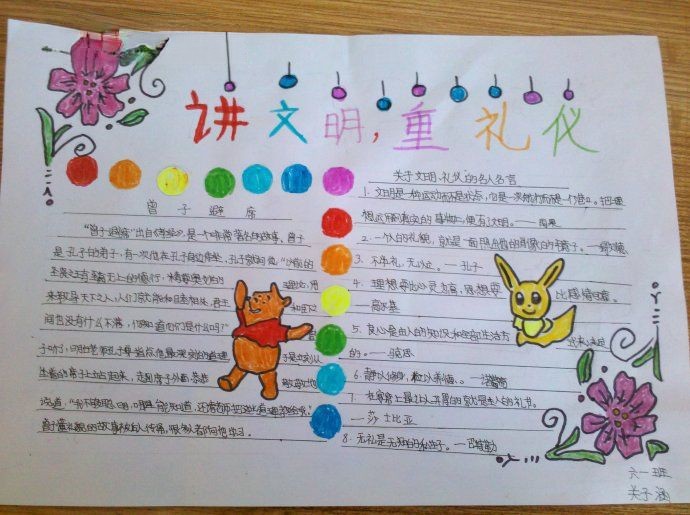 讲文明，重礼仪
曾子避席
"曾子避席"出自《孝经》，是一个非常著名的故事。曾子
是孔子的弟子，有一次他在孔子身边侍坐，孔子就问他："以前的
圣贤之王有至高无上的德行，精要奥妙的理论，用
来教导天下之人，人们就能和睦相处，君王和臣下
间也没有什么不满，你知道它们是什么吗？"曾
子听了，明白老师孔子要指点他最深刻的道理于是立刻从
坐着的席子上站起来，走到席子外面，恭恭敬敬地
说道："我不够聪明，哪里能知道，还请老师把这些道理教给我。"
曾子懂礼貌的故事被后人传诵，很多人都向他学习。
关于文明、礼仪的名人名言
1. 文明是一种运动而不是状态，它是一次航行而不是一个港口。把理
想运用到真实的事物上，便有了文明。——雨果
2. 一个人的礼貌，就是一面照出他的肖像的镜子。——歌德
3. 不学礼，无以立。——孔子
4. 理想要比心灵为高，思想要比感情可靠。
——高尔基
5. 良心是由人的知识和全部生活方式来决定
的。——马克思
6. 静以修身，俭以养德。——诸葛亮
7. 在宴席上最让人开胃的就是主人的礼节。
——莎士比亚
8. 无礼是无知的私生子。——巴特勒
六一班
关子涵